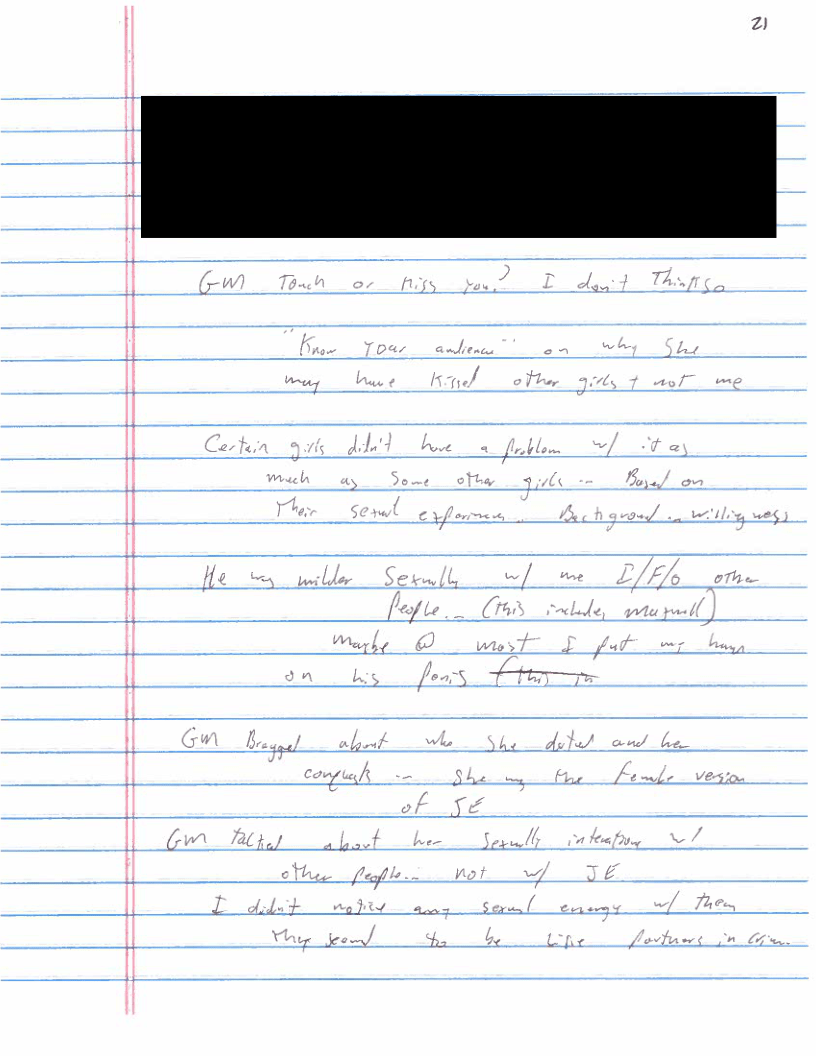 21
GM Touch or Kiss you? I don't Think so
"Know Your audience" on why She
may have Kissed other girls + not me
Certain girls didn't have a problem w/ it as
much as Some other girls -- Based on
Their sexual experiences -- Background -- willingness
He was milder Sexually w/ me I/F/o other
People -- (this includes maxwell)
maybe @ most I put my hand
on his penis (this in
GM Bragged about who She dated and her
conquests -- She was the female version
of JE
GM talked about her Sexually interations w/
other People -- not w/ JE
I didn't notice any sexual energy w/ them
They seemed to be like Partners in Crime